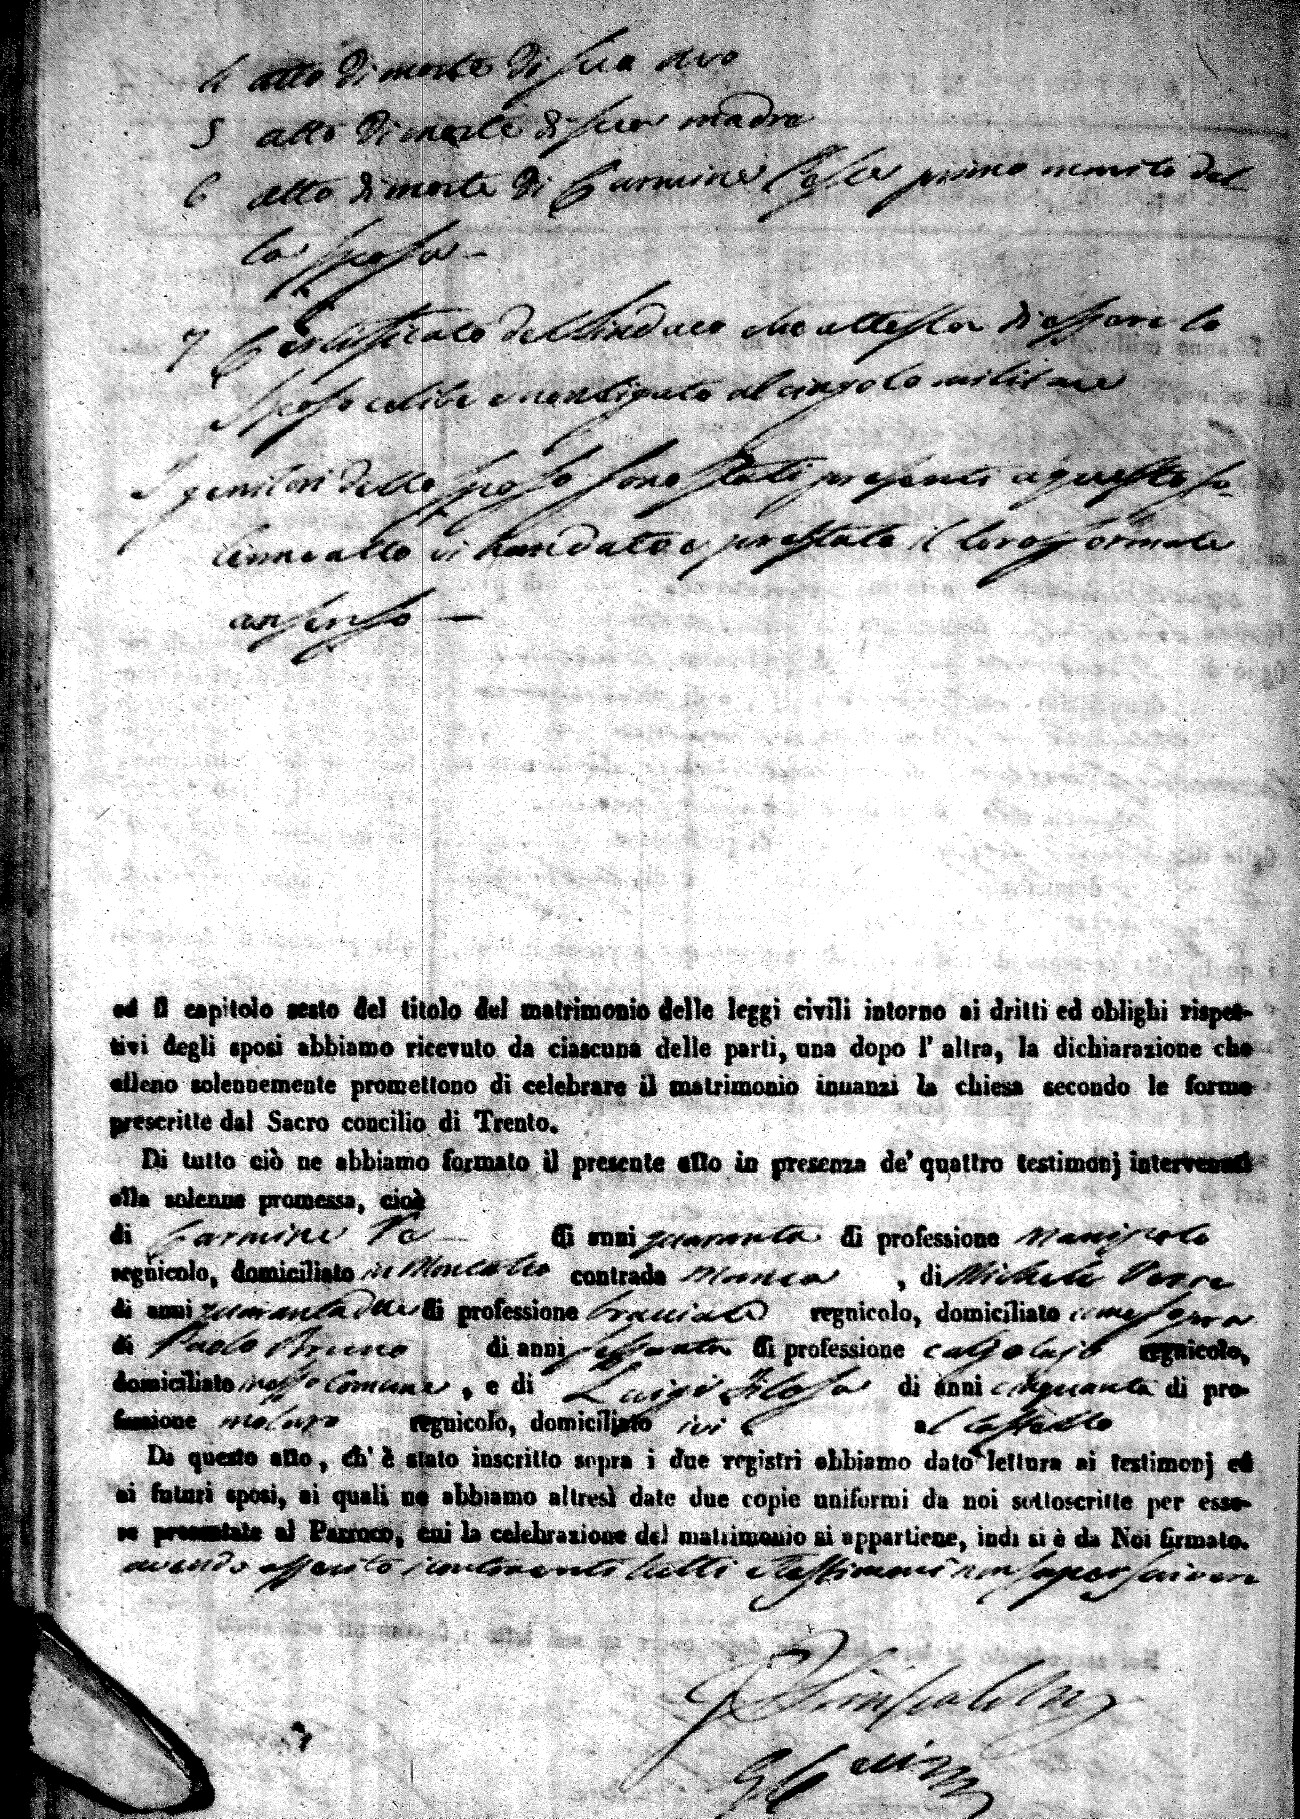 4 atto di morte di suo avo
5 atto di morte di sua madre
6 atto di morte di Carmine primo marito del
la sposa –
7 Certificato del Sindaco che attesta di essere lo
Sposo celibe e non ligato al cingolo militare
I genitori dello sposo sono stati presenti a questo so
lenne atto ed hanno dato e prestato il loro formale
assenso —
ed il capitolo sesto del titolo del matrimonio delle leggi civili intorno ai dritti ed oblighi rispet-
tivi degli sposi abbiamo ricevuto da ciascuna delle parti, una dopo l' altra, la dichiarazione che
elleno solennemente promettono di celebrare il matrimonio innanzi la chiesa secondo le forme
prescritte dal Sacro concilio di Trento.
Di tutto ciò ne abbiamo formato il presente atto in presenza de' quattro testimonj intervenuti
alla solenne promessa, cioè
di Carmine di anni quaranta di professione
regnicolo, domiciliato in contrada , di Michele
di anni quarantadue di professione bracciale regnicolo, domiciliato come sopra
di Paolo Bruno di anni sessanta di professione calzolajo regnicolo,
domiciliato Comune, e di Luigi Filosa di anni cinquanta di pro-
fessione regnicolo, domiciliato ivi al Castello
Di questo atto, ch' è stato inscritto sopra i due registri abbiamo dato lettura ai testimonj ed
ai futuri sposi, ai quali ne abbiamo altresì date due copie uniformi da noi sottoscritte per esse-
re presentate al Parroco, cui la celebrazione del matrimonio si appartiene, indi si è da Noi firmato.
avendo asserito i contraenti tutti e testimoni non saper scrivere